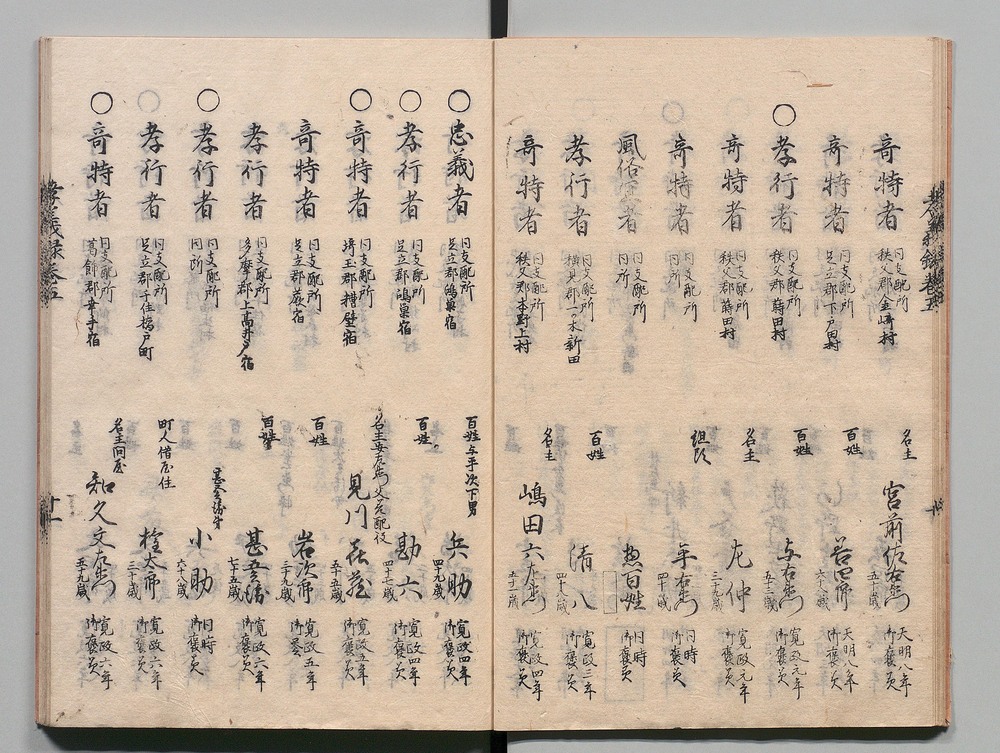 奇特者 同支配所 秩父郡金崎村 名主 宮前佐右衛門 五十歳 天明八年 御褒美
奇特者 同支配所 足立郡下戸田村 百姓 善四郎 六十歳 天明八年 御褒美
孝行者 同支配所 秩父郡蒔田村 百姓 与右衛門 五十二歳 寛政元年 御褒美
奇特者 同支配所 秩父郡蒔田村 名主 左仲 三十九歳 寛政元年 御褒美
奇特者 同支配所 同所 組頭 平右衛門 四十歳 同時 御褒美
風俗宜者 同支配所 同所 惣百姓 同時 御褒美
孝行者 同支配所 横見郡一ツ木新田 百姓 清八 四十八歳 寛政三年 御褒美
奇特者 同支配所 秩父郡本野上村 名主 嶋田六左衛門 五十二歳 寛政四年 御褒美
孝義録巻五
十一
忠義者 同支配所 足立郡鴻巣宿 百姓与平次下男 兵助 四十九歳 寛政四年 御褒美
孝行者 同支配所 足立郡鴻巣宿 百姓 勘六 四十七歳 寛政四年 御褒美
奇特者 同支配所 埼玉郡糟壁宿 見川喜蔵 五十五歳 寛政五年 御褒美
奇特者 同支配所 足立郡蕨宿 百姓 岩次郎 三十九歳 寛政五年 御褒美
孝行者 同支配所 多摩郡上高井戸宿 百姓 甚五左衛門 七十五歳 寛政六年 御褒美
孝行者 同支配所 同所 小助 六十八歳 同時 御褒美
孝行者 同支配所 足立郡千住橋戸町 町人借屋住 権太郎 三十歳 寛政六年 御褒美
奇特者 同支配所 葛飾郡幸手宿 名主問屋 知久文左衛門 五十九歳 寛政六年 御褒美